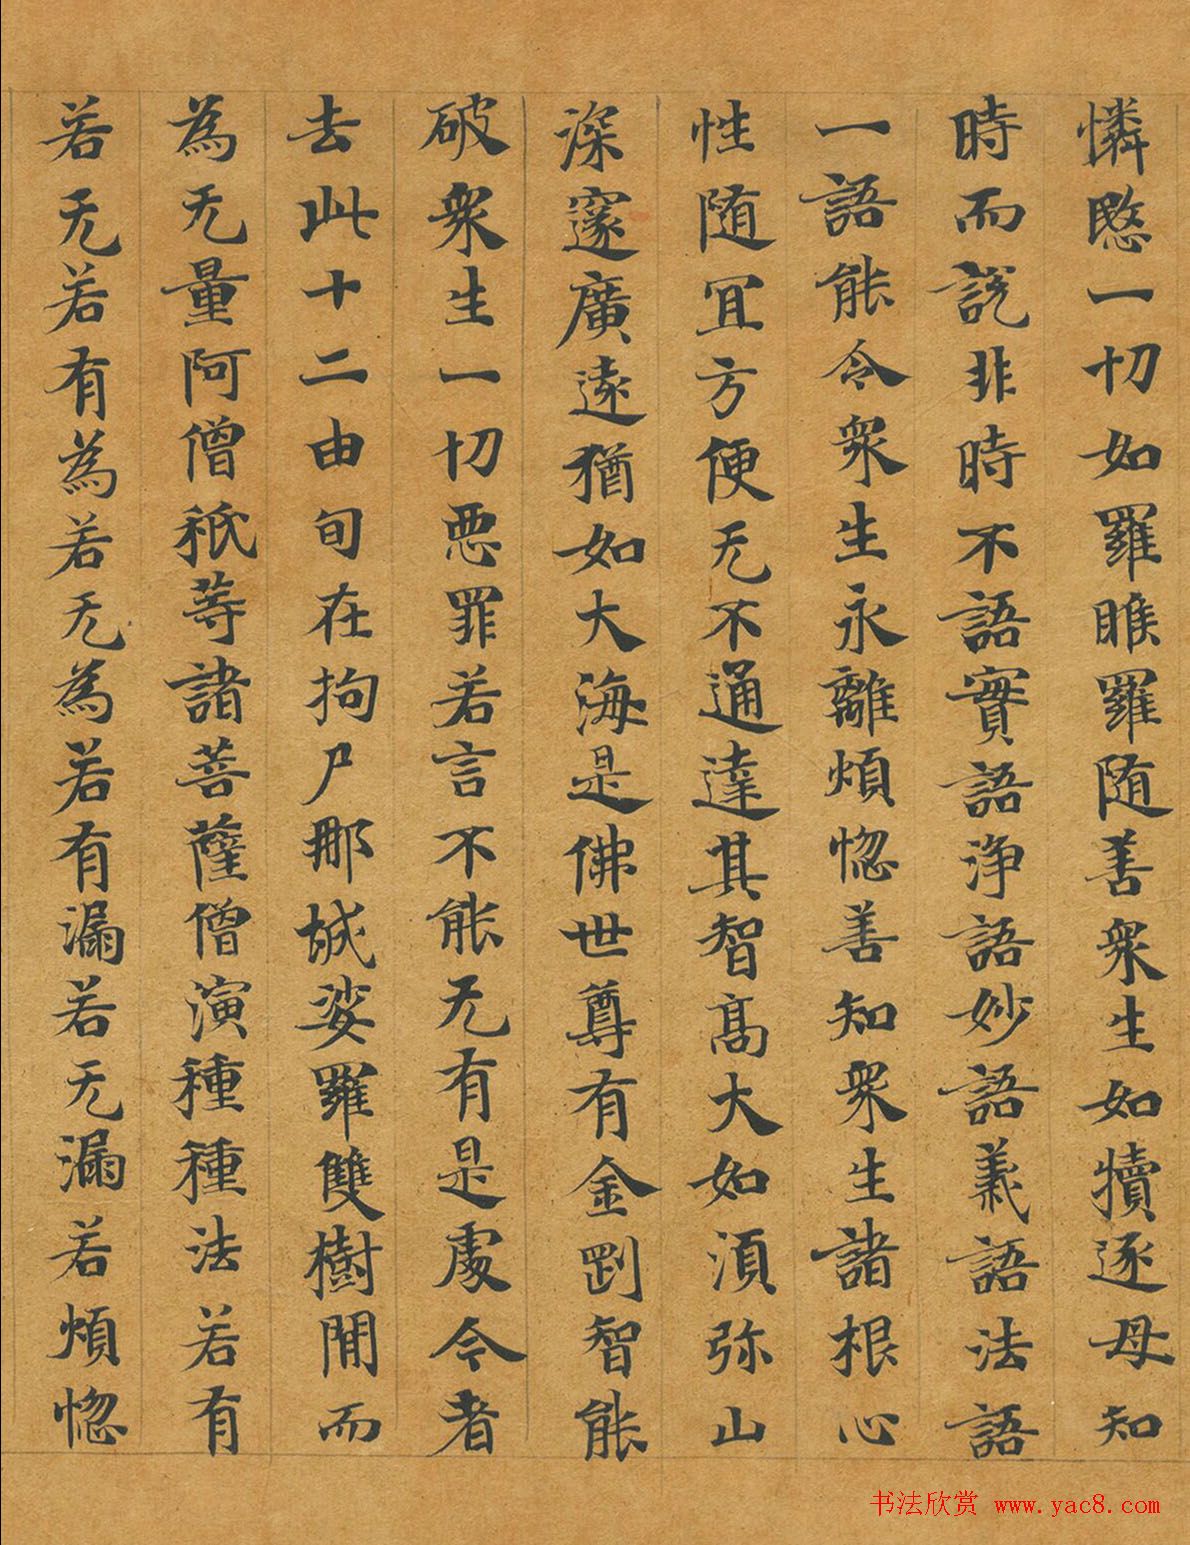 憐愍一切如羅睺羅随善衆生如犢逐母知
時而説非時不語實語浄語妙語義語法語
一語能令衆生永離煩惚善知衆生諸根心
性随冝方便无不通達其智髙大如湏弥山
深邃廣遠猶如大海是佛世尊有金剛智能
破衆生一切悪罪若言不能无有是處今者
去此十二由旬在拘尸那城娑羅雙樹閒而
為无量阿僧秖等諸菩薩僧演種種法若有
若无若有為若无為若有漏若无漏若煩惚
书法欣赏 www.yac8.com